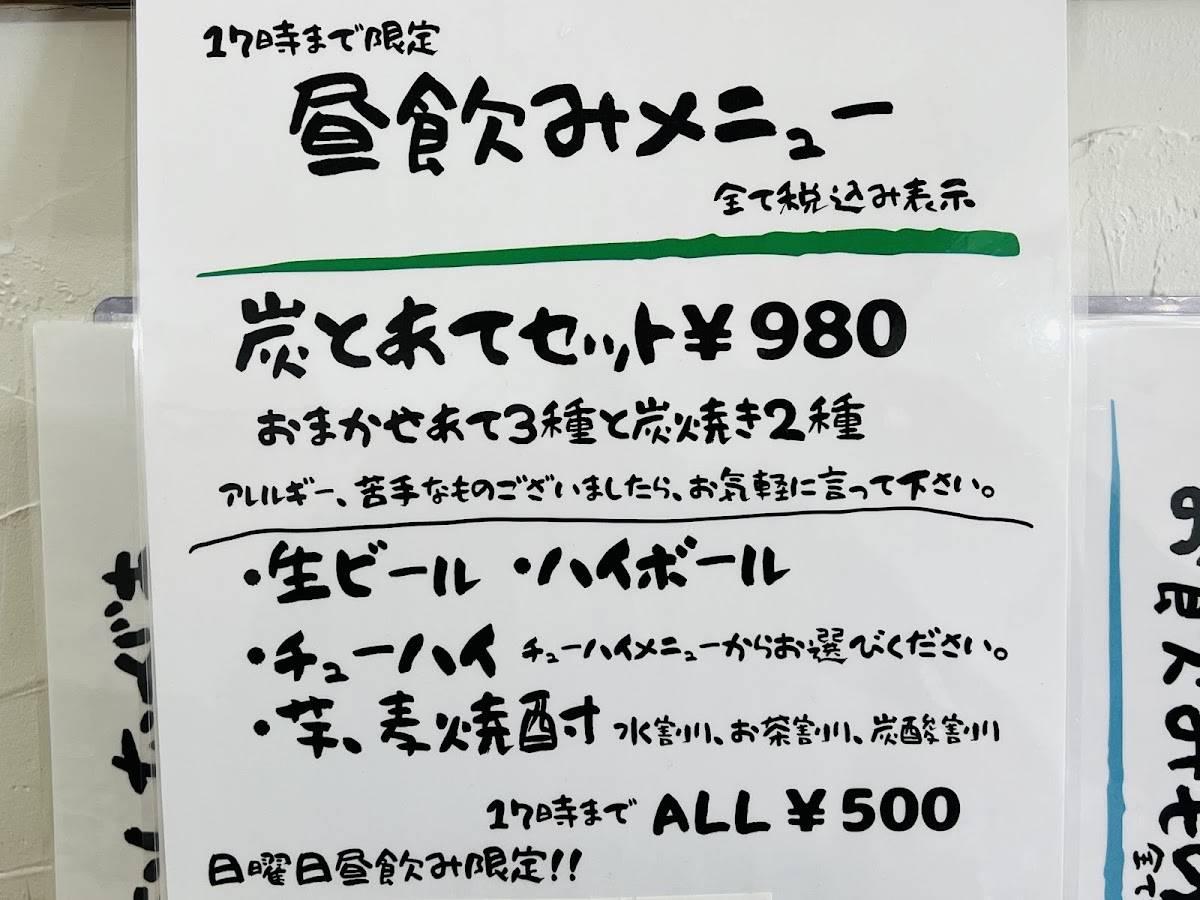 17時まで限定
昼飲みメニュー
全て税込み表示
炭とあてセット¥980
おまかせあて3種と炭焼き2種
アレルギー、苦手なものございましたら、お気軽に言って下さい。
・生ビール ・ハイボール
・チューハイ チューハイメニューからお選びください。
・芋、麦焼酎 水割り、お茶割り、炭酸割り
17時まで ALL ¥500
日曜日昼飲み限定!!